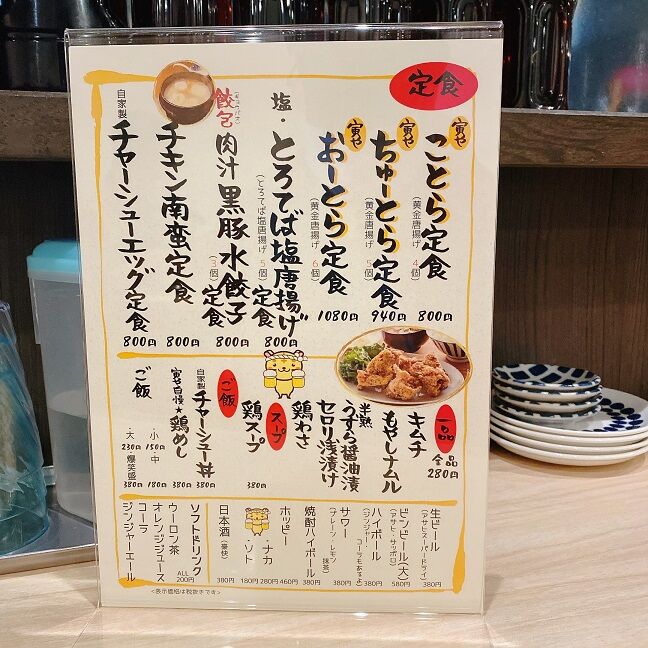 定食
寅や
ことら定食
(黄金唐揚げ 4個)
800円
寅や
ちゅーとら定食
(黄金唐揚げ 5個)
940円
寅や
おーとら定食
(黄金唐揚げ 6個)
1080円
塩・とろてば塩唐揚げ定食
(とろてば塩唐揚げ 5個)
800円
餃包
肉汁黒豚水餃子定食
(3個)
800円
チキン南蛮定食
800円
自家製
チャーシューエッグ定食
800円
一品
全品
280円
キムチ
もやしナムル
半熟
うずら醤油漬
セロリ浅漬け
鶏わさ
スープ
鶏スープ
380円
ご飯
自家製
チャーシュー丼
380円
寅や自慢★鶏めし
380円
ご飯
・小 150円
・中 180円
・大 230円
・爆笑盛 380円
生ビール
(アサヒスーパードライ)
380円
ビンビール(大)
(アサヒ・サッポロ)
580円
ハイボール
(ジンジャー・コーラもある)
380円
サワー
(プレーン・レモン・抹茶)
380円
焼酎ハイボール
380円
ホッピー
460円
・ナカ
280円
・ソト
180円
日本酒(豪快)
380円
ソフトドリンク
ALL 200円
ウーロン茶
オレンジジュース
コーラ
ジンジャーエール
<表示価格は税抜きです>